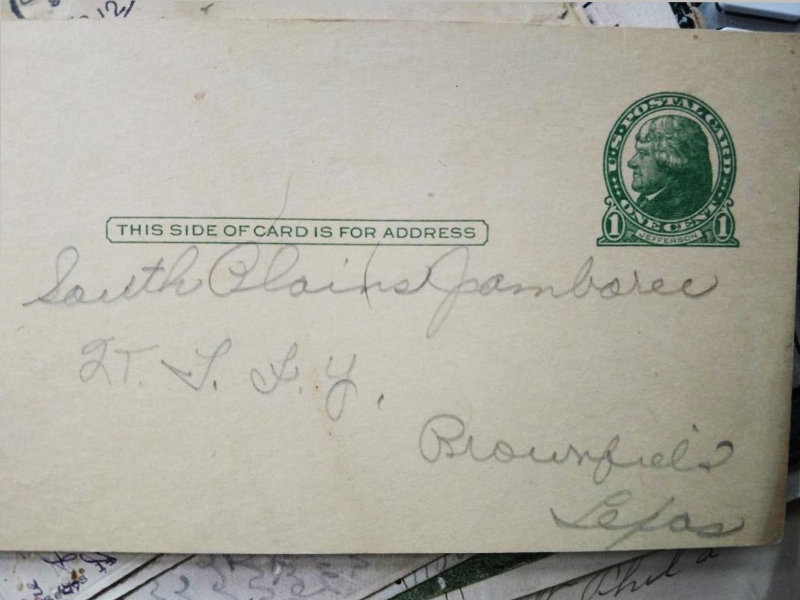 U.S. POSTAL CARD
ONE CENT
1 JEFFERSON 1
THIS SIDE OF CARD IS FOR ADDRESS
South Plains Jamboree
T. F. Y.
Brownfield
Texas